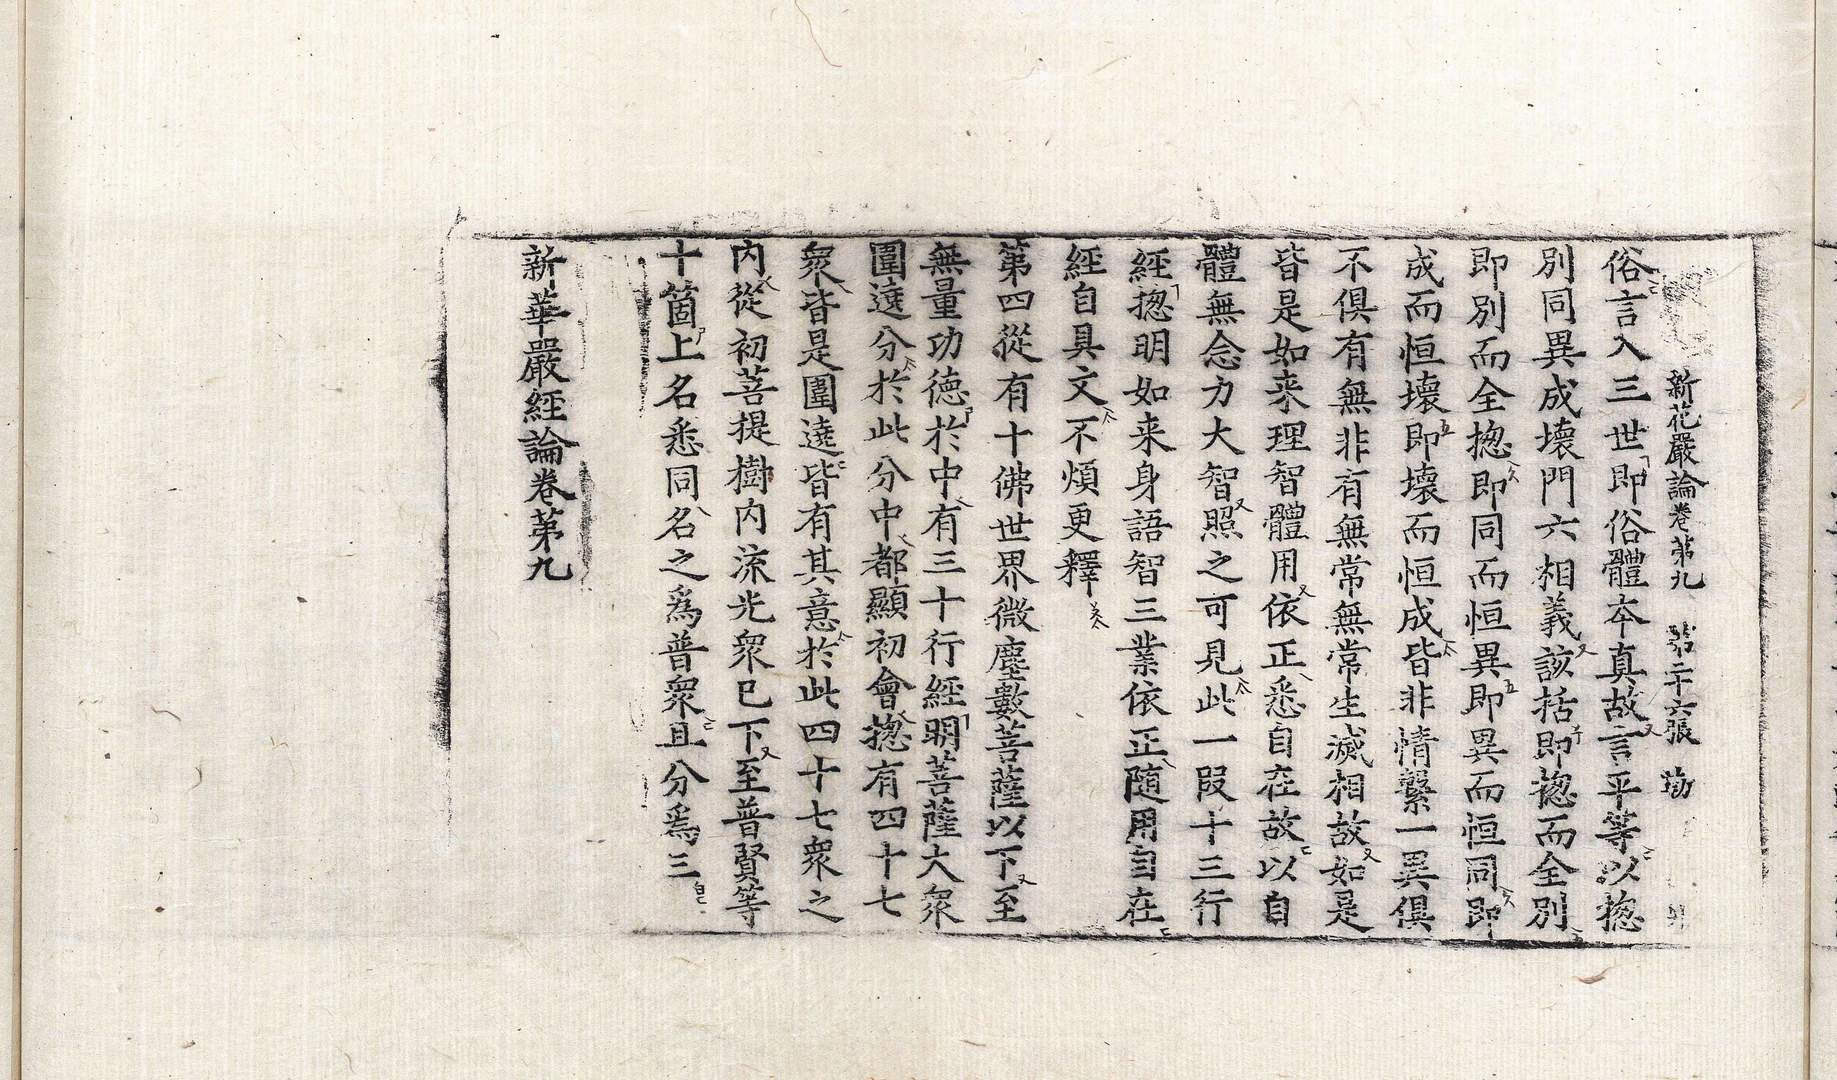 新花嚴論卷第九 第二十六張 㔟
俗言入三世即俗體夲真故言平等以揔
別同異成壞門六相義該括即揔而全別
即別而全揔即同而恒異即異而恒同即
成而恒壞即壞而恒成皆非情繫一異俱
不俱有無非有無常無常生滅相故如是
皆是如来理智體用依正悉自在故以自
體無念力大智照之可見此一段十三行
經揔明如来身語智三業依正随用自在
經自具文不煩更釋
第四從有十佛世界微塵數菩薩以下至
無量功德於中有三十行經明菩薩大衆
圍遶分於此分中都顯初會揔有四十七
衆皆是圍遶皆有其意於此四十七衆之
内從初菩提樹内流光衆已下至普賢等
十箇上名悉同名之爲普衆且分爲三
新華嚴経論卷第九